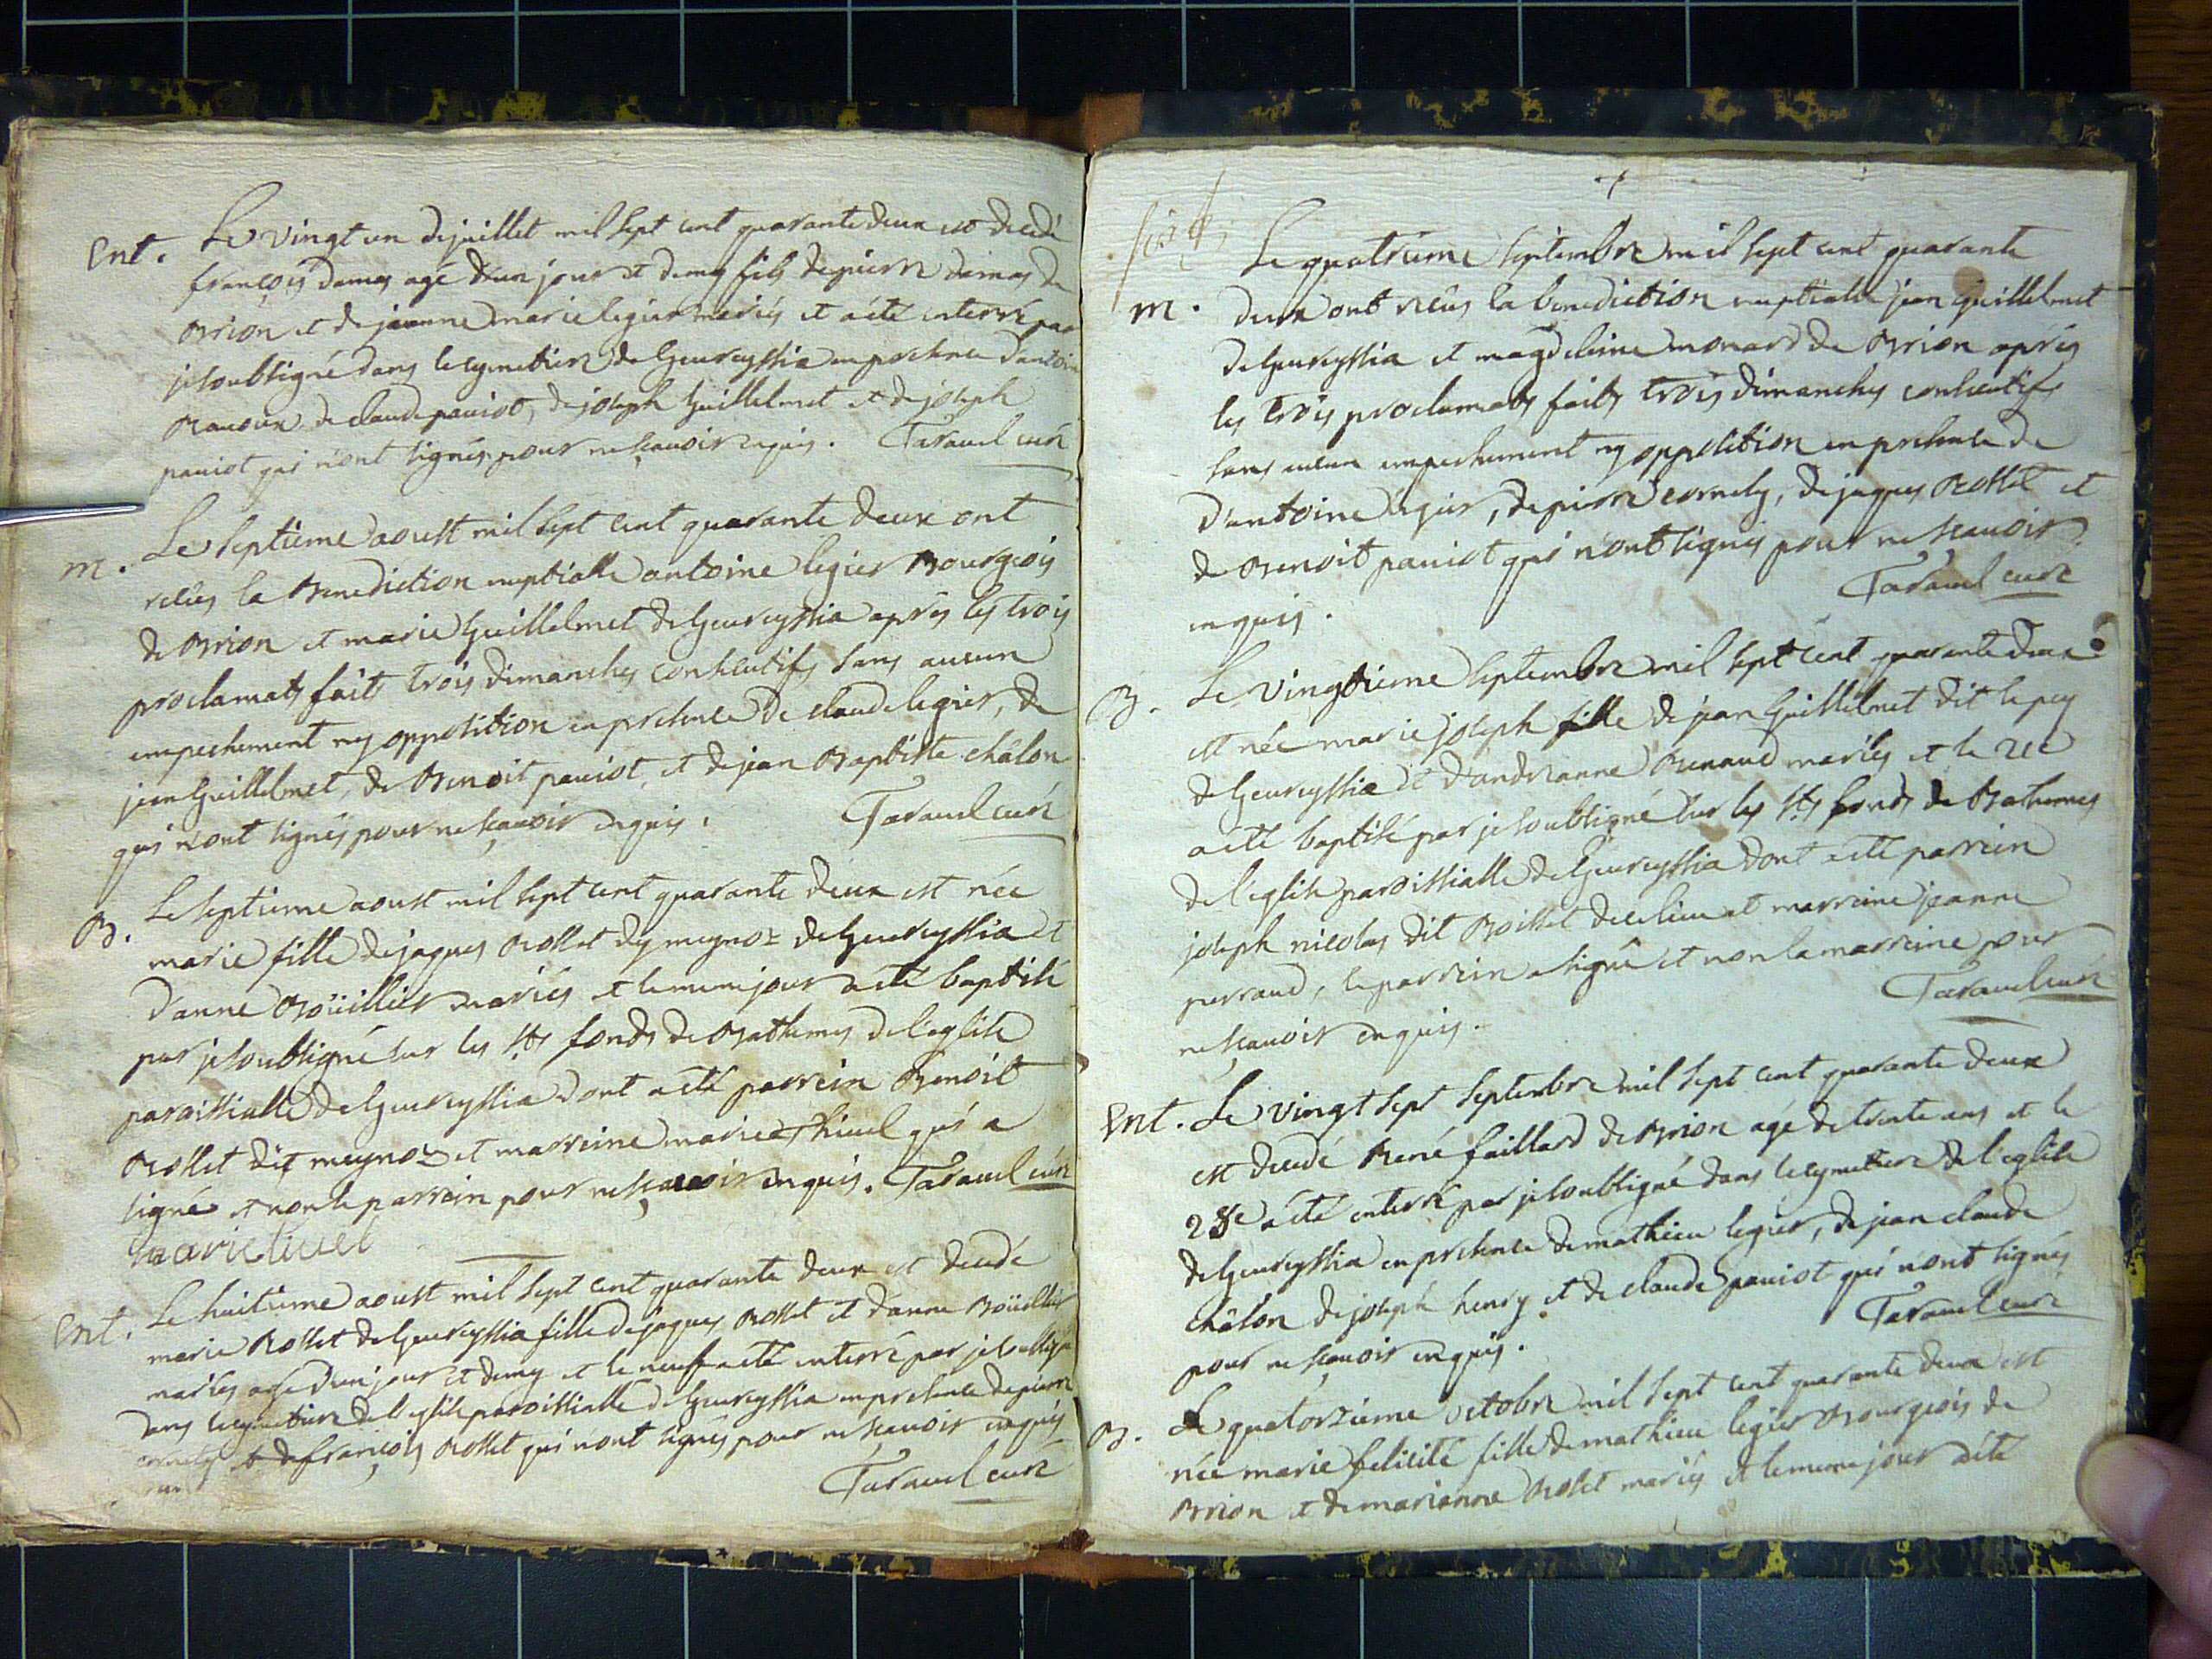 Ent. Le vingt un de juillet mil sept cent quarante deux est decedé
françois damas agé d'un jour et demy fils de pierre damas de
Brion et de jeanne marie legier mariés et a été enterré par
je soubsigné dans le cymetiere de Geureyssia en presence d'antoine
de claude paviot, de joseph Guillelmet et de joseph
paviot qui n'ont signés pour ne sçavoir enquis. Taravel curé
m. Le septieme aoust mil sept cent quarante deux ont
reçus la Benediction nuptialle antoine legier Bourgeois
de Brion et marie Guillelmet de Geureyssia après les trois
proclamats faits trois dimanches consecutifs sans aucun
empechement ny opposition en presence de claude legier, de
jean Guillelmet, de Benoit paviot, et de jean Baptiste châlon
qui n'ont signés pour ne sçavoir enquis. Taravel curé
B. Le septieme aoust mil sept cent quarante deux est née
marie fille de jaques Rosset dy meynoz de Geureyssia et
d'anne Boüillier mariés et le meme jour a été baptisé
par je soubsigné sur les sts fonds de Bathemes de l'eglise
paroissialle de Geureyssia dont a été parrein Benoit
Rosset dit meynoz et marreine marie Thivel qui a
signé et non le parrein pour ne sçavoir enquis. Taravel curé
marie tivel
Ent. Le huitieme aoust mil sept cent quarante deux est decedé
marie Rosset de Geureyssia fille de jaques Rosset et d'anne Boüillier
mariés agé d'un jour et demy et le neuf a été enterré par je soubsigné
dans le cymetiere de l'eglise paroissialle de Geureyssia en presence de pierre
cornely et de françois Rosset qui n'ont signés pour ne sçavoir enquis
Taravel curé
Le quatrieme septembre mil sept cent quarante
m. deux ont reçus la benediction nuptialle jean guillelmet
de Geureyssia et magdeleine monard de Brion après
les trois proclamats faits trois dimanches consecutifs
sans aucun empechement ny opposition en presence de
d'antoine legier, de pierre cornely, de jaques Rosset et
de Benoit paviot qui n'ont signés pour ne sçavoir
enquis. Taravel curé
B. Le vingtieme septembre mil sept cent quarante deux
est née marie joseph fille de jean Guillelmet dit le pey
de Geureyssia et d'andrianne Renaud mariés et le 21e
a été baptisé par je soubsigné sur les sts fonds de Bathemes
de l'eglise paroissialle de Geureyssia dont a été parrein
joseph nicolas dit Boisset de ce lieu et marreine jeanne
perraud, le parrein a signé et non la marreine pour
ne sçavoir enquis. Taravel curé
Ent. Le vingt sept septembre mil sept cent quarante deux
est decedé René faillard de Brion agé de trente ans et le
28e a été enterré par je soubsigné dans le cymetiere de l'eglise
de Geureyssia en presence de mathieu legier, de jean claude
châlon de joseph henry et de claude paviot qui n'ont signés
pour ne sçavoir enquis. Taravel curé
B. Le quatorzieme octobre mil sept cent quarante deux est
née marie felicité fille de mathieu legier Bourgeois de
Brion et de marianne Rosset mariés et le meme jour a été